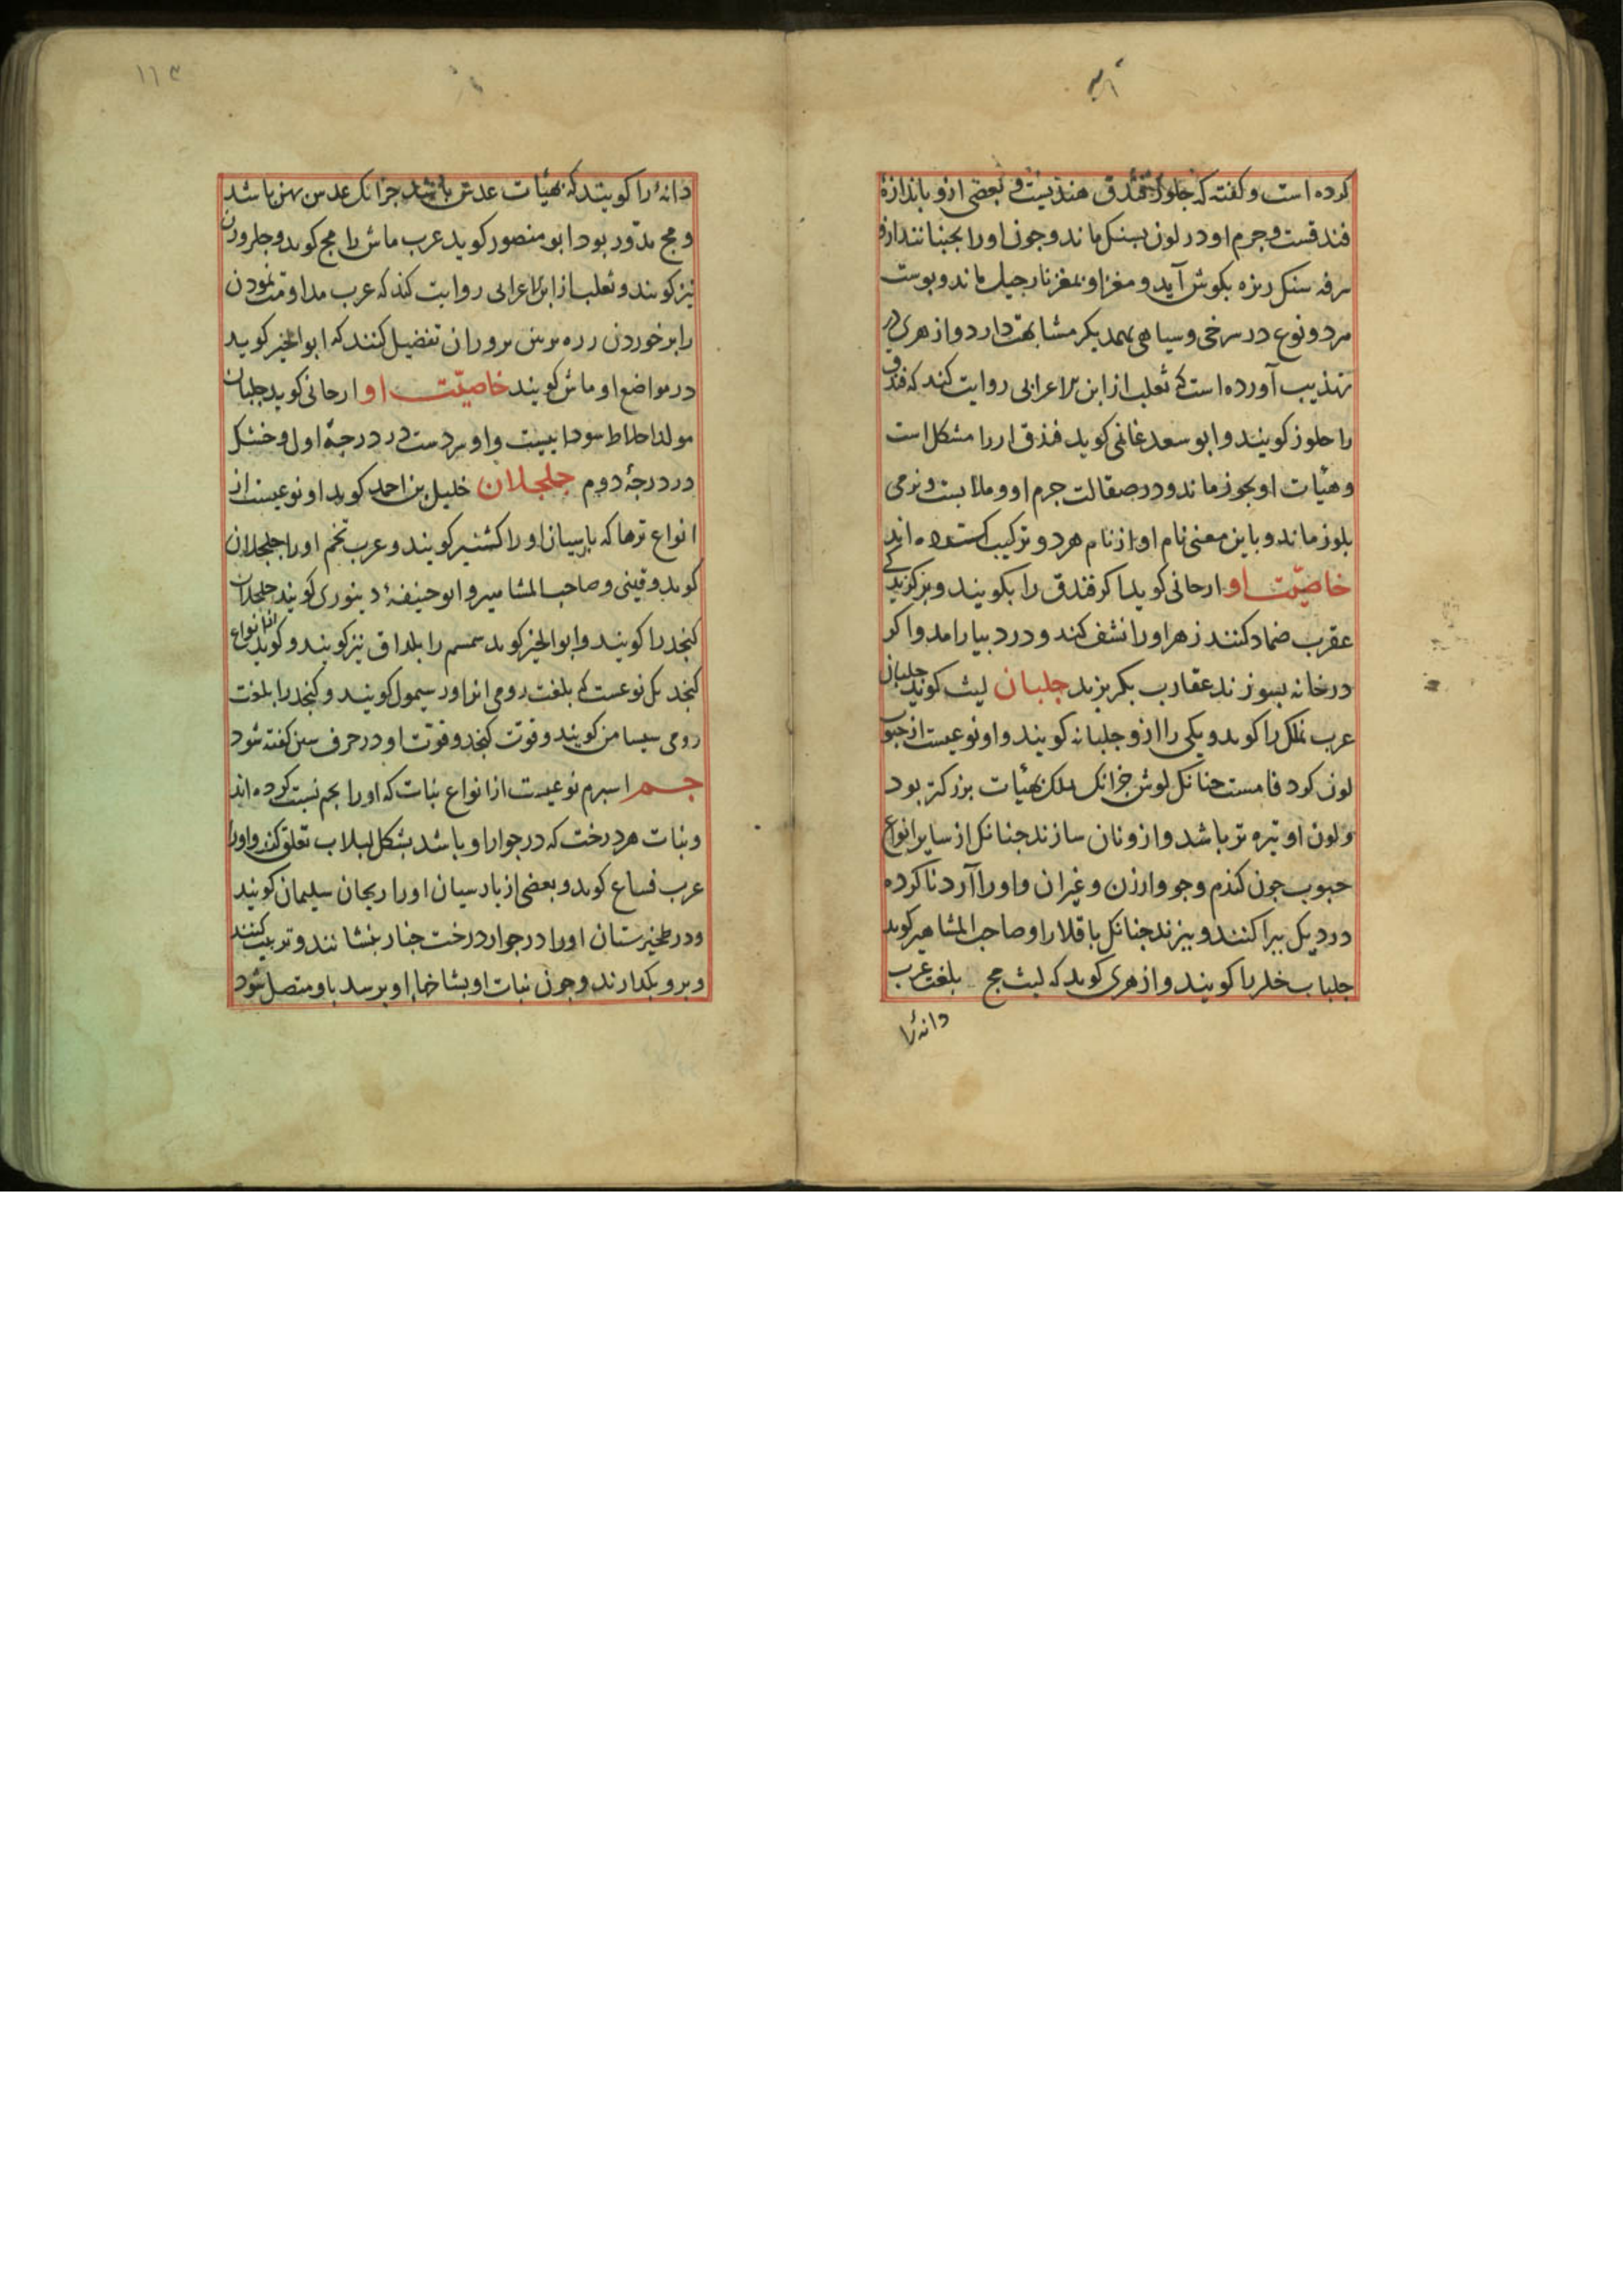 کرده است و کفته که جلوز فندق هندیست و بعضی ازو باندازهٔ
فندقست و جرم او در لون بسنک ماند و جون اورا بجنبانند ازو
سرفه سنک ریزه بکوش آید و مغز او بمغز نارجیل ماند و بوست
هر دو نوع در سرخی و سیاهی بهمدیکر مشابهت دارد و ازهری در
تهذیب آورده است که ثعلب از ابن الاعرابی روایت کند که فندق
را جلوز کویند و ابو سعد غانمی کوید فندق ار را مشکل است
و هیأت او بجوز ماند و در صقالت جرم او و ملابست و نرمی
بلوز ماند و باین معنی نام او از نام هر دو ترکیب کرده اند
خاصیّت او ارجانی کوید اکر فندق را بکویند و بر کزیدکی
عقرب ضماد کنند زهر اورا نشف کند و در دبیارامد و اکر
در خانه بسوزند عقارب بکریزند جلبان لیث کوید جلبان
عرب ملک را کوید و یکی را ازو جلبانه کویند و او نوعیست از حبوب
لون کرد فامست جنانک لوش جزانک ملک بهیأت بزرکتر بود
و لون او تیره تر باشد و ازو نان سازند جنانک از سایر انواع
حبوب جون کندم و جو و ارزن و غیران و اورا آرد ناکرده
در دیک بیراکنند و بیزند جنانک باقلا را و صاحب المشاهیر کوید
جلباب خلر را کویند و ازهری کوید که لیث مج بلغت عرب
دانهٔ را
۱۱۳
دانهٔ را کویند که بهیأت عدس باشد جزانک عدس بهن باشد
و مج مدّور بود ابو منصور کوید عرب ماش را مج کوید و جلرورن
نیز کویند و ثعلب از ابن الاعرابی روایت کند که عرب مداومت نمودن
را بر خوردن برورران تفضیل کنند که ابو الخیر کوید
در مواضع او ماش کویند خاصیّت او ارجانی کوید جلبان
مولد اخلاط سوداییست و او سردست در درجهٔ اول و خشک
در درجهٔ دوم جلجلان خلیل بن احمد کوید او نوعیست از
انواع ترها که بارسیان اورا کشنیر کویند و عرب تخم اورا جلجلان
کوید و قینی و صاحب المشاهیر و ابو حنیفهٔ دینوری کویند جلجلان
کنجد را کویند و ابو الخیر کوید سمسم را بلداق نیز کویند و کوید از انواع
کنجد یک نوعست که بلغت رومی انرا اور سیمول کویند و کنجد را بلغت
رومی سیسامن کویند و قوت کنجد و قوّت او در حرف سین کفته شود
جم اسبرم نوعیست از انواع نبات که اورا بجم نسبت کرده اند
و نبات هر درخت که در جوار او باشد بشکل لبلاب تعلق کند و اورا
عرب فساع کوید و بعضی از بارسیان اورا ریحان سلیمان کویند
و در طخیرستان اورا در جوار درخت جنار بنشانند و تربیت کنند
و برو بکدارند و جون نبات او بشاخها او برسد باو متصل شود